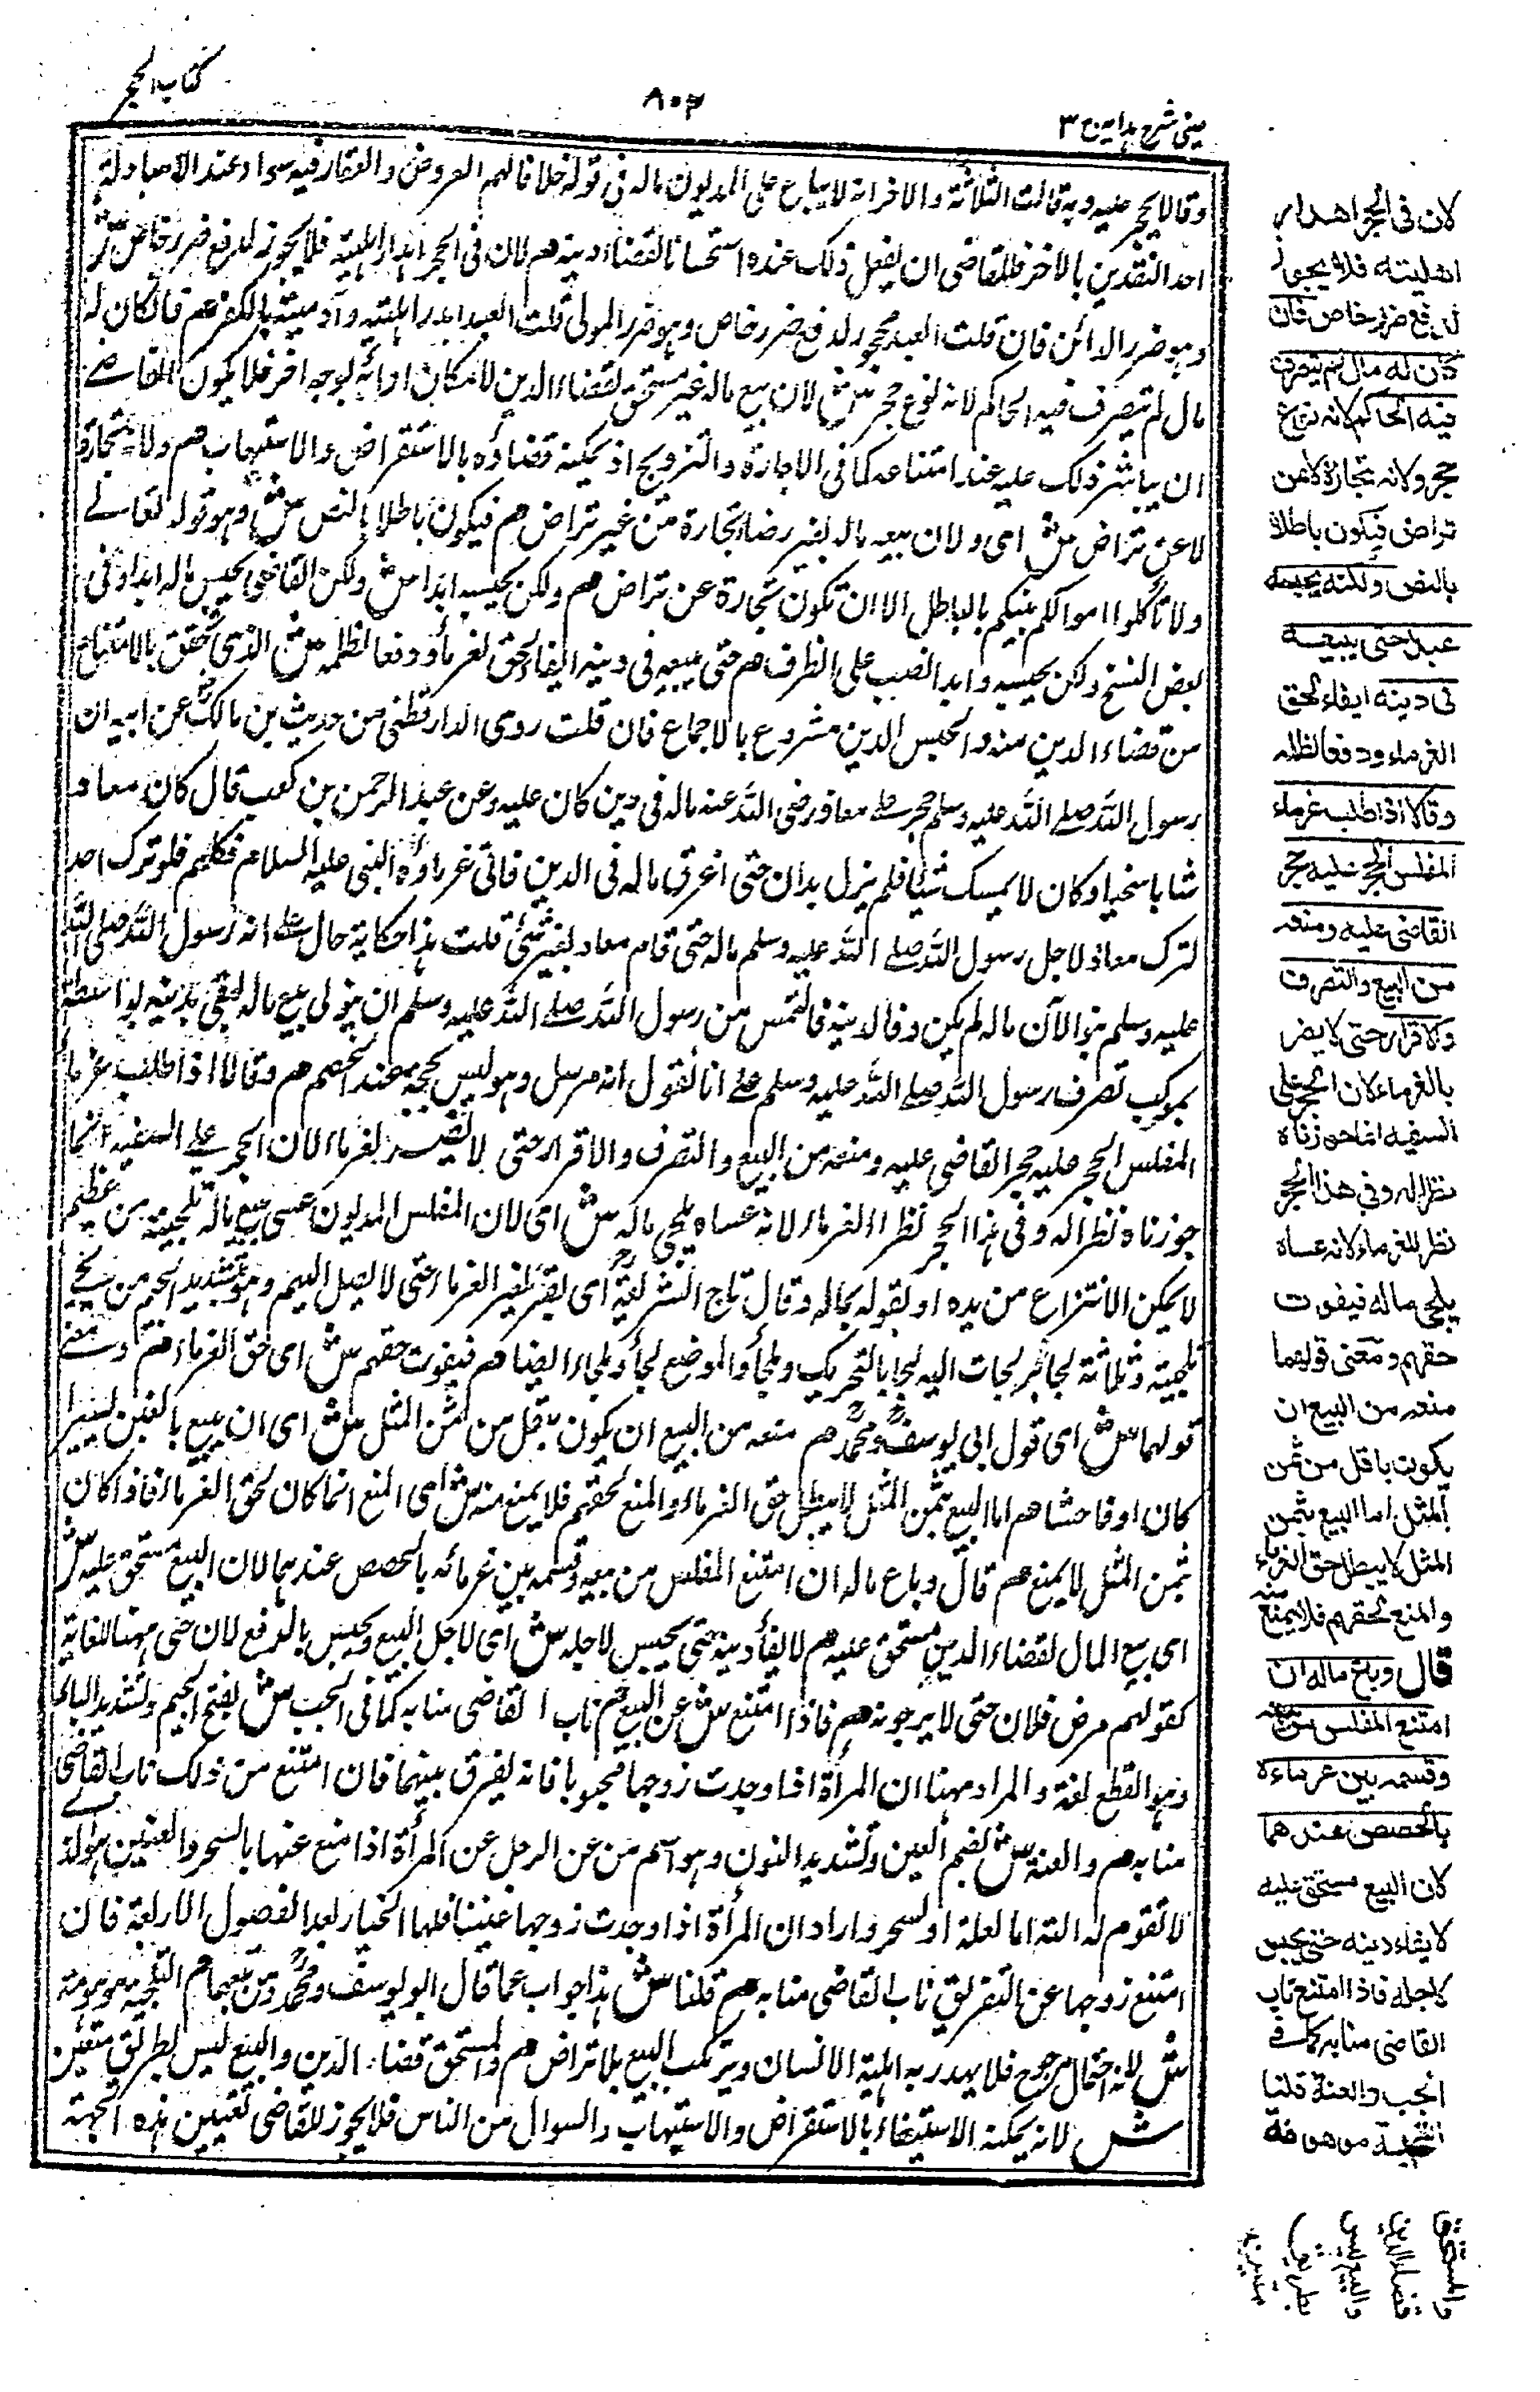 كتاب الحجر
٨٠٣
عينى شرح هداية ج ٣
وقالا يحجر عليه وبه قالت الثلاثة والا فرانه لا يباع على المديون ماله فى قوله خلافا لهم العروض والعقار فيه سواء وعند الا مبادلة
احد النقدين بالاخر فللقاضى ان يفعل ذلك عنده استحسانا لقضاء دينه هم لان فى الحجر اهدار اهليته فلا يجوز لدفع ضرر خاص ش
وهو ضرر الدائن فان قلت العبد محجور لدفع ضرر خاص وهو ضرر المولى قلت العبد اهدر اهليته وآدميته بالكفر هم فان كان له
مال لم يتصرف فيه الحاكم لانه نوع حجر ش لان بيع ماله غير مستحق لقضاء الدين لامكان ادائه بوجه اخر فلا يكون للقاضى
ان يباشر ذلك عليه عند امتناعه كما فى الاجارة والتزويج اذ يمكنه قضاؤه بالاستقراض والاستيهاب هم ولانه تجارة
لا عن تراض ش اى ولان بيعه ماله بغير رضاه تجارة من غير تراض هم فيكون باطلا بالنص ش وهو قوله تعالى
ولا تأكلوا اموالكم بينكم بالباطل الا ان تكون تجارة عن تراض هم ولكن يحبسه ابدا ش ولكن القاضى يحبس ماله ابدا وفى
بعض النسخ ولكن يحبسه وابدا نصب على الظرف هم حتى يبيعه فى دينه ايفاء لحق الغرماء ودفعا لظلمه ش الذى تحقق بالامتناع
من قضاء الدين منه والحبس الدين مشروع بالاجماع فان قلت روى الدارقطنى من حديث بن مالك عن ابيه ان
رسول الله صلى الله عليه وسلم حجر على معاذ رضى الله عنه ماله فى دين كان عليه وعن عبد الرحمن بن كعب قال كان معاذ
شابا سخيا وكان لا يمسك شيئا فلم يزل يدان حتى اغرق ماله فى الدين فاتى غرماؤه النبى عليه السلام فكلمهم فلو ترك احد
لترك معاذ لاجل رسول الله صلى الله عليه وسلم ماله حتى قام معاذ بغير شئ قلت هذا حكاية حال على انه رسول الله صلى الله
عليه وسلم هو الآن ماله لم يكن وفا لدينه فالتمس من رسول الله صلى الله عليه وسلم ان يتولى بيع ماله ليفى بدينه بواسطة
بركة تصرف رسول الله صلى الله عليه وسلم على انا نقول انه مرسل وهو ليس بحجة عند الخصم هم وقالا اذا طلب غرماء
المفلس الحجر عليه حجر القاضى عليه ومنعه من البيع والتصرف والاقرار حتى لا يضر بالغرماء لان الحجر على السفيه انما
جوزناه نظرا له وفى هذا الحجر نظرا للغرماء لانه عساه يلجى ماله ش اى لان المفلس المديون عسى يبيع ماله تلجية من عظيم
لا يمكن الانتزاع من يده او بقوله بماله وقال تاج الشريعة اى يقر لغير الغرماء حتى لا يصل اليهم وهو بتشديد الجيم من يلجى
تلجية وثلاثة لجا لجات اليه لجا بالتحريك وملجأ والموضع لجأ وملجا ايضا هم فيفوت حقهم ش اى حق الغرماء هم ومعنى
قولهما ش اى قول ابى يوسف ومحمد هم منعه من البيع ان يكون باقل من ثمن المثل ش اى ان يبيع بالغبن يسيرا
كان او فاحشا هم اما البيع بثمن المثل لا يبطل حق الغرماء والمنع لحقهم فلا يمنع منه ش اى المنع انما كان لحق الغرماء فاذا كان
بثمن المثل لا يمنع هم قال وباع ماله ان امتنع المفلس من بيعه وقسمه بين غرمائه بالحصص عندهما لان البيع مستحق عليه ش
اى بيع المال لقضاء الدين مستحق عليه هم لايفاء دينه حتى يحبس لاجله ش اى لاجل البيع ويحبس بالرفع لان حتى ههنا للغاية
كقولهم مرض فلان حتى لا يرجونه هم فاذا امتنع ش عن البيع هم ناب القاضى منابه كما فى الجب ش بفتح الجيم وتشديد الباء
وهو القطع لغة والمراد ههنا ان المرأة اذا وجدت زوجها مجبوبا فانه يفرق بينهما فان امتنع من ذلك ناب القاضى
منابه هم والعنة ش بضم العين وتشديد النون وهو اسم من عن الرجل عن المرأة اذا منع عنها بالسحر والعنين هو الذى
لا تقوم له آلته اما لعلة او لسحر واراد ان المرأة اذا وجدت زوجها عنينا فلها الخيار بعد الفصول الاربعة فان
امتنع زوجها عن التفريق ناب القاضى منابه هم قلنا ش هذا جواب عما قال ابو يوسف ومحمد ومن تبعهما هم التلجية موهومة
ش لانه احتمال مرجوح فلا يهدر به اهلية الانسان ويرتكب البيع بلا تراض هم والمستحق قضاء الدين والبيع ليس بطريق متعين
ش لانه يمكنه الاستيفاء بالاستقراض والاستيهاب والسوال من الناس فلا يجوز للقاضى تعيين هذه الجهة
لان فى الحجر اهدار
اهليته فلا يجوز
لدفع ضرر خاص فان
كان له مال لم يتصرف
فيه الحاكم لانه نوع
حجر ولانه تجارة لا عن
تراض فيكون باطلا
بالنص ولكنه يحبسه
عبدا حتى يبيعه
فى دينه ايفاء لحق
الغرماء ودفعا لظلمه
وقالا اذا طلب غرماء
المفلس الحجر عليه حجر
القاضى عليه ومنعه
من البيع والتصرف
والاقرار حتى لا يضر
بالغرماء لان الحجر على
السفيه انما جوزناه
نظرا له وفى هذا الحجر
نظر للغرماء لانه عساه
يلجى ماله فيفوت
حقهم ومعنى قولهما
منعه من البيع ان
يكون باقل من ثمن
المثل اما البيع بثمن
المثل لا يبطل حق الغرماء
والمنع لحقهم فلا يمنع منه
قال وباع ماله ان
امتنع المفلس من بيعه
وقسمه بين غرماءه
بالحصص عندهما
لان البيع مستحق عليه
لايفاء دينه حتى يحبس
لاجله فاذا امتنع ناب
القاضى منابه كما فى
الجب والعنة قلنا
التلجية موهومة
والمستحق
قضاء الدين
والبيع ليس
بطريق